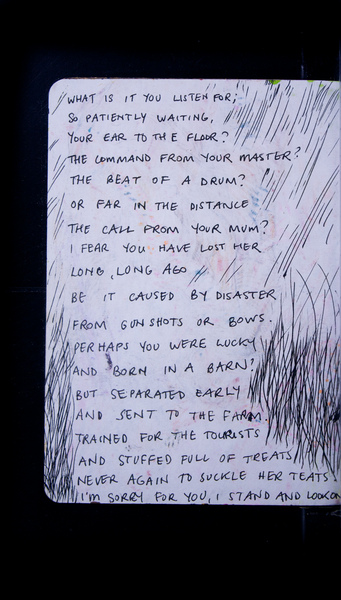 WHAT IS IT YOU LISTEN FOR;
SO PATIENTLY WAITING,
YOUR EAR TO THE FLOOR?
THE COMMAND FROM YOUR MASTER?
THE BEAT OF A DRUM?
OR FAR IN THE DISTANCE
THE CALL FROM YOUR MUM?
I FEAR YOU HAVE LOST HER
LONG, LONG AGO
BE IT CAUSED BY DISASTER
FROM GUNSHOTS OR BOWS.
PERHAPS YOU WERE LUCKY
AND BORN IN A BARN?
BUT SEPARATED EARLY
AND SENT TO THE FARM.
TRAINED FOR THE TOURISTS
AND STUFFED FULL OF TREATS
NEVER AGAIN TO SUCKLE HER TEATS.
I'M SORRY FOR YOU, I STAND AND LOOK ON